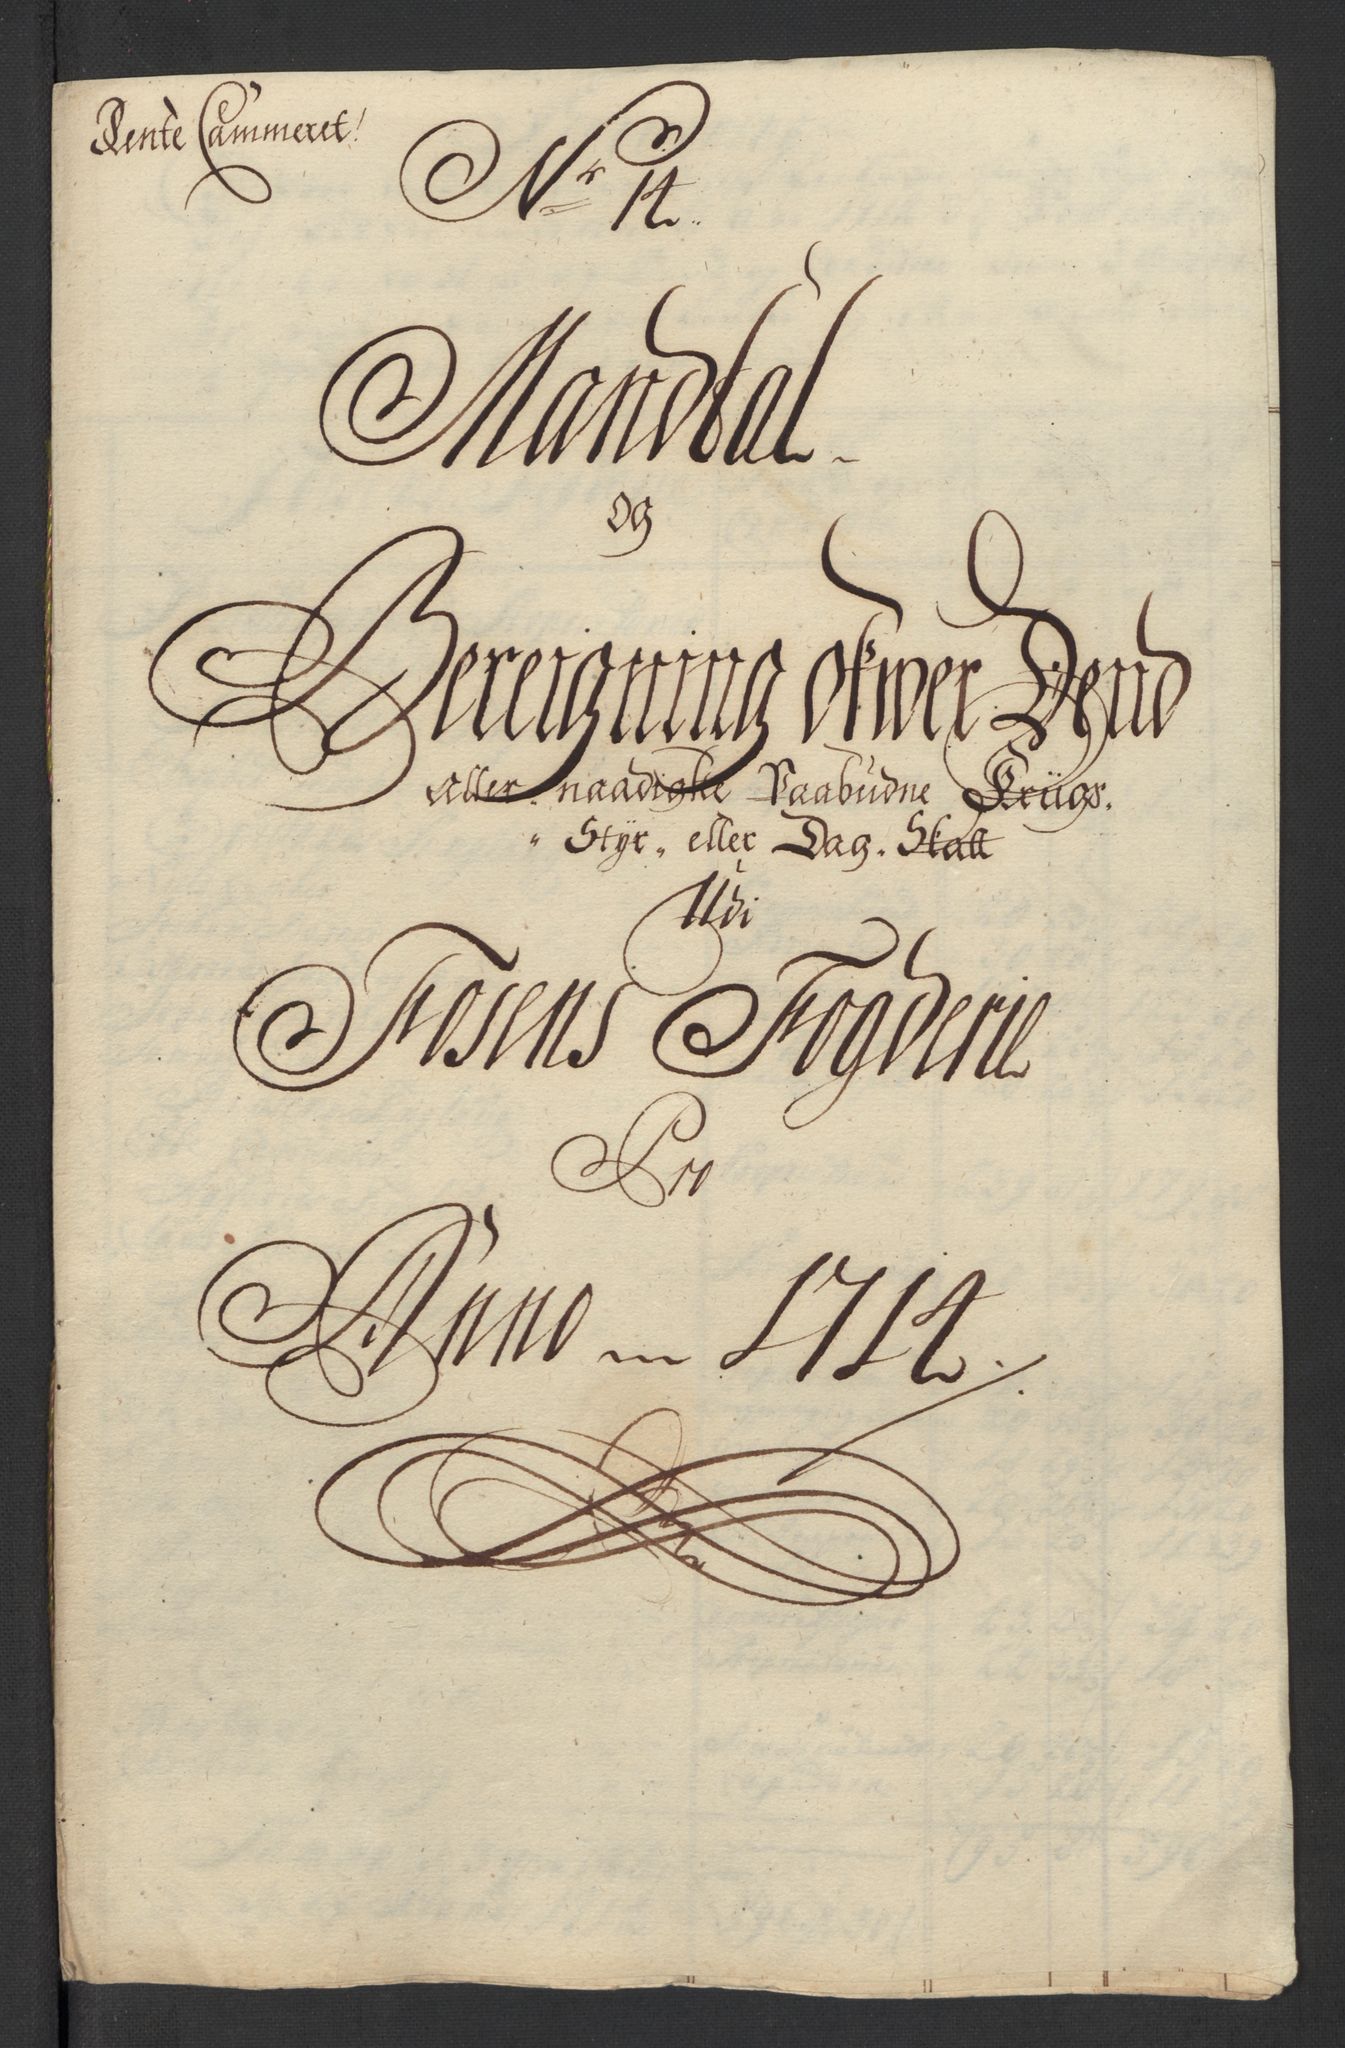 Rente Cammeret!
Nr 14.
Mandtal
og
Bereigning ofwer Dend
aller naadigste Paabudne Kriigs.
Styr. eller Dag. Skatt
Udi
Fosens Fogderie
Pro
Anno 1714.